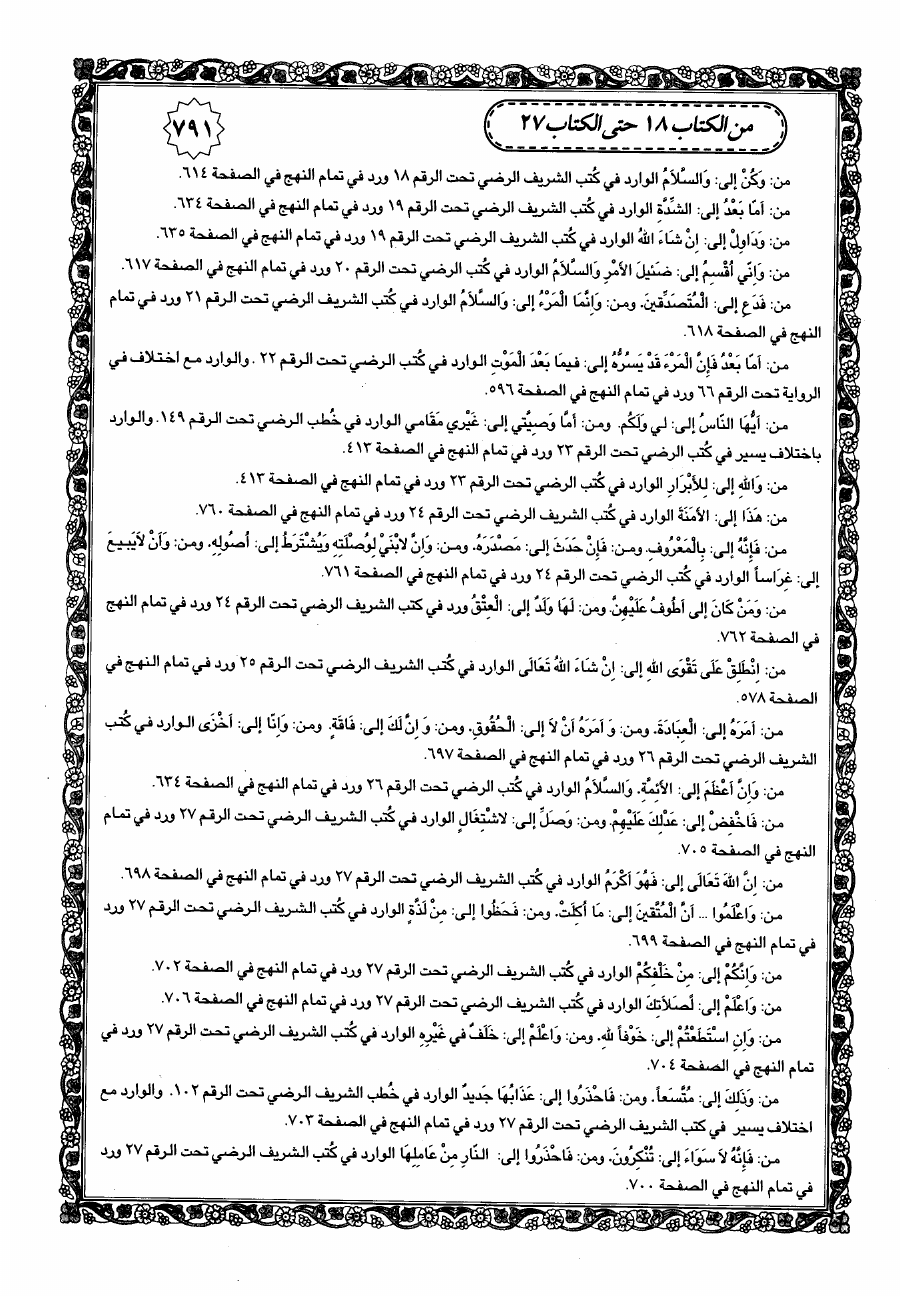 من الكتاب ١٨ حتى الكتاب ٢٧
٧٩١
من: وَكُنْ إلى: وَالسَّلاَمُ الوارد في كُتب الشريف الرضي تحت الرقم ١٨ ورد في تمام النهج في الصفحة ٦١٤.
من: أمَّا بَعْدُ إلى: الشِّدَّةِ الوارد في كُتب الشريف الرضي تحت الرقم ١٩ ورد في تمام النهج في الصفحة ٦٣٤.
من: وَدَاوِلْ إلى: إنْ شَاءَ اللهُ الوارد في كُتب الشريف الرضي تحت الرقم ١٩ ورد في تمام النهج في الصفحة ٦٣٥.
من: وَإنّي أُقْسِمُ إلى: ضَئيلَ الأَمْرِ وَالسَّلاَمُ الوارد في كُتب الرضي تحت الرقم ٢٠ ورد في تمام النهج في الصفحة ٦١٧.
من: فَدَعِ إلى: الْمُتَصَدِّقينَ. ومن: وَإنَّمَا الْمَرْءُ إلى: وَالسَّلاَمُ الوارد في كُتب الشريف الرضي تحت الرقم ٢١ ورد في تمام
النهج في الصفحة ٦١٨.
من: أمَّا بَعْدُ فَإنَّ الْمَرْءَ قَدْ يَسُرُّهُ إلى: فيمَا بَعْدَ الْمَوْتِ الوارد في كُتب الرضي تحت الرقم ٢٢. والوارد مع اختلاف في
الرواية تحت الرقم ٦٦ ورد في تمام النهج في الصفحة ٥٩٦.
من: أَيُّهَا النَّاسُ إلى: لي وَلَكُم. ومن: أمَّا وَصِيَّتي إلى: غَيْري مَقَامي الوارد في خُطب الرضي تحت الرقم ١٤٩. والوارد
باختلاف يسير في كُتب الرضي تحت الرقم ٢٣ ورد في تمام النهج في الصفحة ٤١٣.
من: وَاللهِ إلى: لِلأَبْرَارِ الوارد في كُتب الرضي تحت الرقم ٢٣ ورد في تمام النهج في الصفحة ٤١٣.
من: هَذَا إلى: الأَمَنَةَ الوارد في كُتب الشريف الرضي تحت الرقم ٢٤ ورد في تمام النهج في الصفحة ٧٦٠.
من: فَإنَّهُ إلى: بِالْمَعْرُوفِ. ومن: فَإنْ حَدَثَ إلى: مَصْدَرَهُ. ومن: وَإنَّ لاِبْنَيْ لِوُصْلَتِهِ وَيُشْتَرَطُ إلى: أُصُولِهِ. ومن: وَأنْ لاَيَبيعَ
إلى: غِرَاساً الوارد في كُتب الرضي تحت الرقم ٢٤ ورد في تمام النهج في الصفحة ٧٦١.
من: وَمَنْ كَانَ إلى أطُوفُ عَلَيْهِنَّ. ومن: لَهَا وَلَدٌ إلى: الْعِتْقُ ورد في كتب الشريف الرضي تحت الرقم ٢٤ ورد في تمام النهج
في الصفحة ٧٦٢.
من: إنْطَلِقْ عَلَى تَقْوَى اللهِ إلى: إنْ شَاءَ اللهُ تَعَالَى الوارد في كُتب الشريف الرضي تحت الرقم ٢٥ ورد في تمام النهج في
الصفحة ٥٧٨.
من: أَمَرَهُ إلى: الْعِبَادَةَ. ومن: وَ أَمَرَهُ أنْ لاَ إلى: الْحُقُوقِ. ومن: وَ إنَّ لَكَ إلى: فَاقَةٍ. ومن: وَإنَّا إلى: أَخْزَى الوارد في كُتب
الشريف الرضي تحت الرقم ٢٦ ورد في تمام النهج في الصفحة ٦٩٧.
من: وَإنَّ أَعْظَمَ إلى: الأَئِمَّةِ. وَالسَّلاَمُ الوارد في كُتب الرضي تحت الرقم ٢٦ ورد في تمام النهج في الصفحة ٦٣٤.
من: فَاخْفِضْ إلى: عَدْلِكَ عَلَيْهِمْ. ومن: وَصَلِّ إلى: لاشْتِغَالٍ الوارد في كُتب الشريف الرضي تحت الرقم ٢٧ ورد في تمام
النهج في الصفحة ٧٠٥.
من: إنَّ اللهَ تَعَالَى إلى: فَهُوَ أَكْرَمُ الوارد في كُتب الشريف الرضي تحت الرقم ٢٧ ورد في تمام النهج في الصفحة ٦٩٨.
من: وَاعْلَمُوا ... أَنَّ الْمُتَّقينَ إلى: مَا أُكِلَتْ. ومن: فَحَظُوا إلى: مِنْ لَذَّةٍ الوارد في كُتب الشريف الرضي تحت الرقم ٢٧ ورد
في تمام النهج في الصفحة ٦٩٩.
من: وَإنَّكُمْ إلى: مِنْ خَلْفِكُمْ الوارد في كُتب الشريف الرضي تحت الرقم ٢٧ ورد في تمام النهج في الصفحة ٧٠٢.
من: وَاعْلَمْ إلى: لَصَلاَتِكَ الوارد في كُتب الشريف الرضي تحت الرقم ٢٧ ورد في تمام النهج في الصفحة ٧٠٦.
من: وَإنِ اسْتَطَعْتُمْ إلى: خَوْفاً للهِ. ومن: وَاعْلَمْ إلى: خَلَفٌ في غَيْرِهِ الوارد في كُتب الشريف الرضي تحت الرقم ٢٧ ورد في
تمام النهج في الصفحة ٧٠٤.
من: وَذَلِكَ إلى: مُتَّسَعاً. ومن: فَاحْذَرُوا إلى: عَذَابُهَا جَديدٌ الوارد في خُطب الشريف الرضي تحت الرقم ١٠٢. والوارد مع
اختلاف يسير في كتب الشريف الرضي تحت الرقم ٢٧ ورد في تمام النهج في الصفحة ٧٠٣.
من: فَإنَّهُ لاَ سَوَاءَ إلى: تُنْكِرُونَ. ومن: فَاحْذَرُوا إلى: النَّارِ مِنْ عَامِلِهَا الوارد في كُتب الشريف الرضي تحت الرقم ٢٧ ورد
في تمام النهج في الصفحة ٧٠٠.